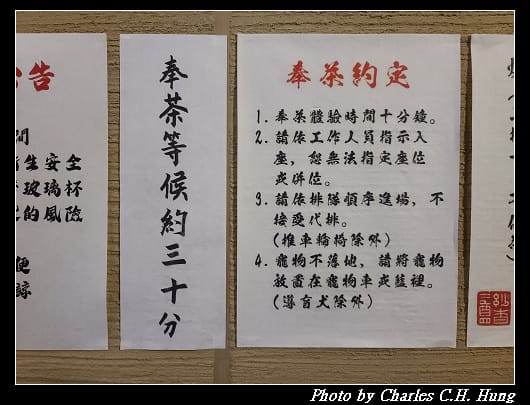 公告
間
生安全
玻璃杯
的風險
便
諒
奉茶等候約三十分
奉茶約定
1. 奉茶體驗時間十分鐘。
2. 請依工作人員指示入
座，恕無法指定座位
或併位。
3. 請依排隊順序進場，不
接受代排。
(推車輪椅除外)
4. 寵物不落地，請將寵物
放置在寵物車或籃裡。
(導盲犬除外)
Photo by Charles C.H. Hung